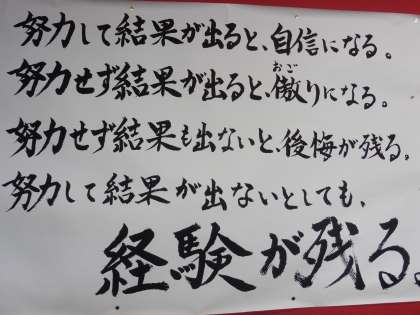 努力して結果が出ると、自信になる。
努力せず結果が出ると、傲りになる。
おご
努力せず結果も出ないと、後悔が残る。
努力して結果が出ないとしても、
経験が残る。